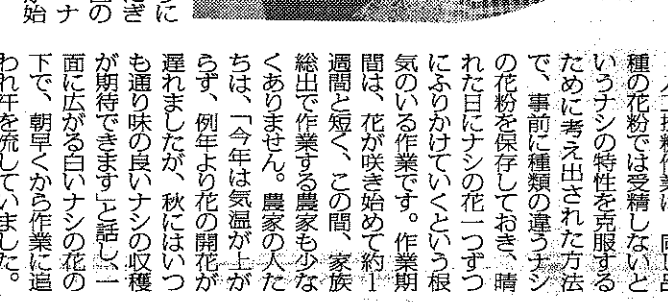 人工授粉作業は、同じ品
種の花粉では受精しないと
いうナシの特性を克服する
ために考え出された方法
で、事前に種類の違うナシ
の花粉を保存しておき、晴
れた日にナシの花一つずつ
にふりかけていくという根
気のいる作業です。作業期
間は、花が咲き始めて約1
週間と短く、この間、家族
総出で作業する農家も少な
くありません。農家の人た
ちは、「今年は気温が上が
らず、例年より花の開花が
遅れましたが、秋にはいつ
も通り味の良いナシの収穫
が期待できます」と話し、一
面に広がる白いナシの花の
下で、朝早くから作業に追
われ汗を流していました。